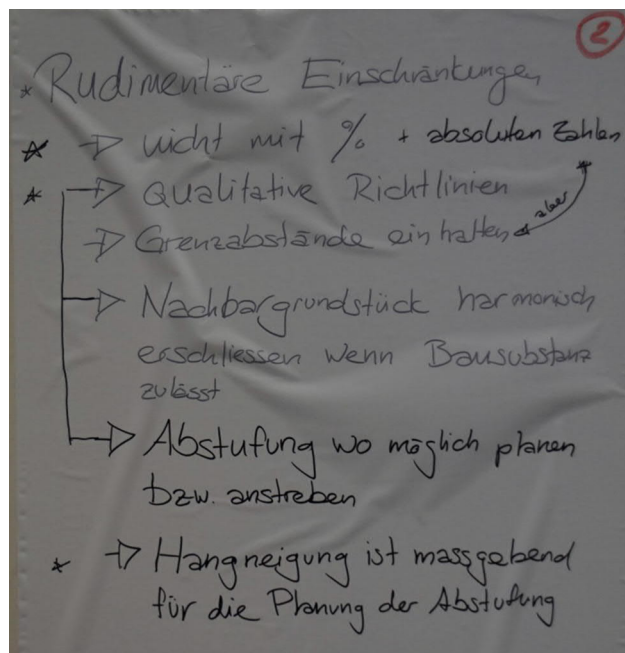 2
* Rudimentäre Einschränkungen
* → nicht mit % + absoluten Zahlen
* → Qualitative Richtlinien
aber
→ Grenzabstände einhalten
→ Nachbargrundstück harmonisch
erschliessen wenn Bausubstanz
zulässt
→ Abstufung wo möglich planen
bzw. anstreben
* → Hangneigung ist massgebend
für die Planung der Abstufung